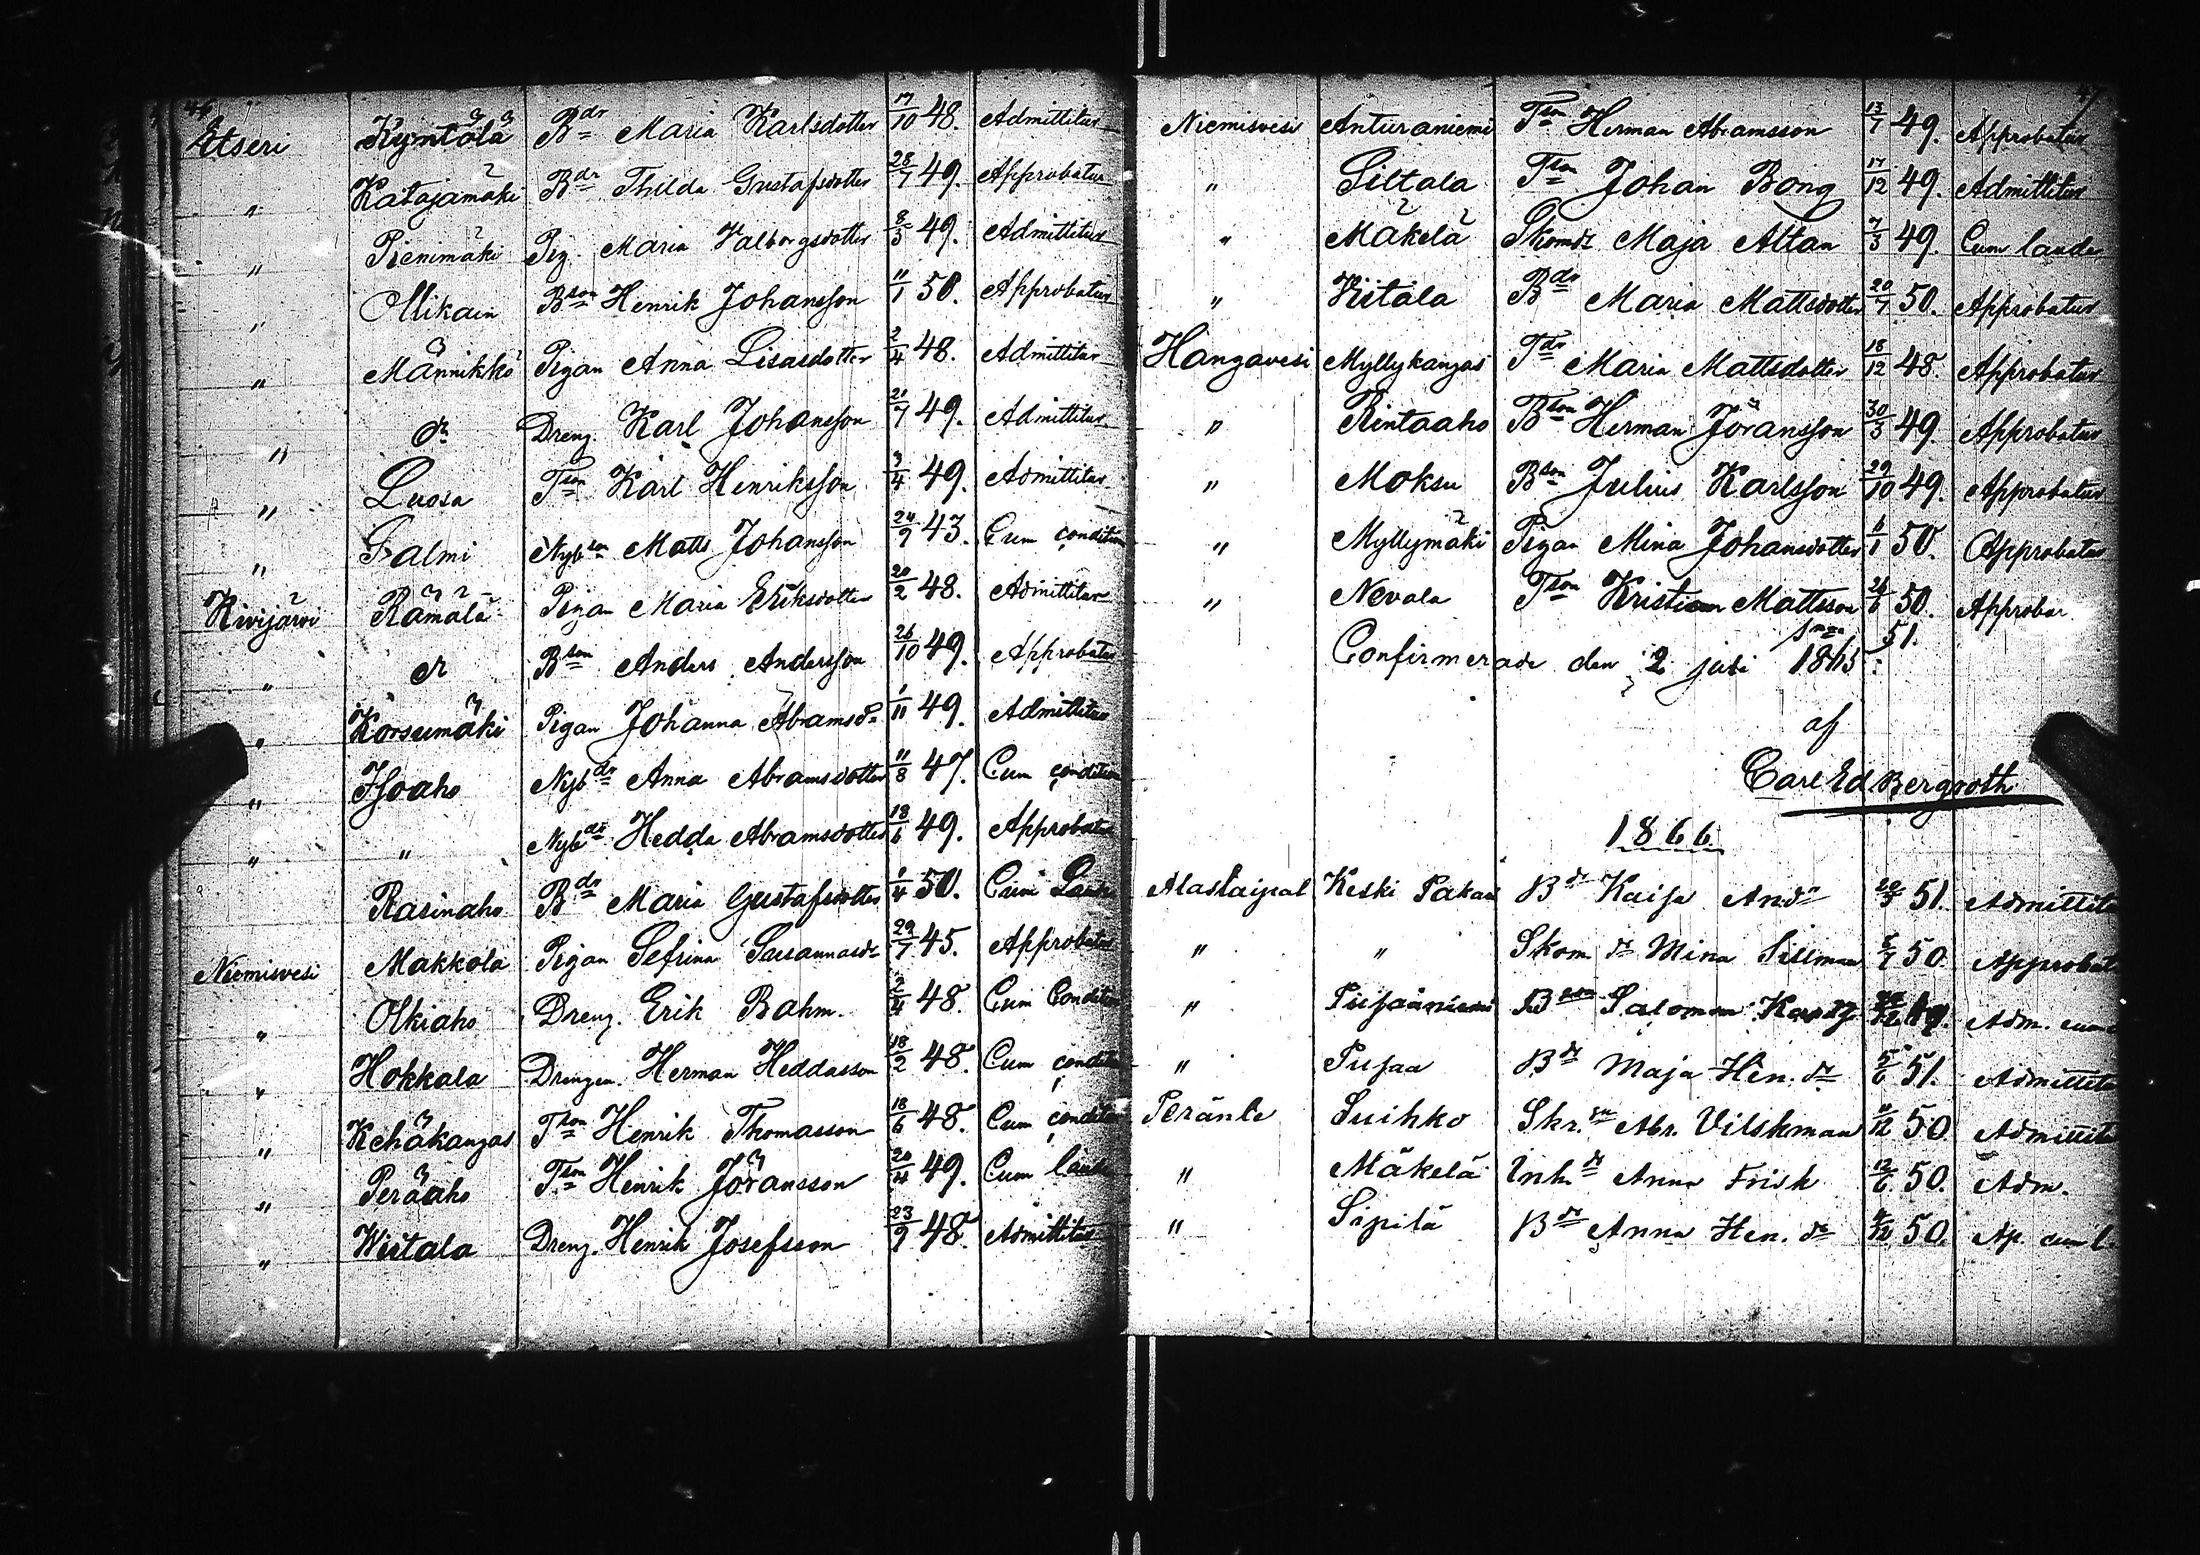 46
Etseri Kyntölä Bdr Maria Karlsdotter 17/10 48. Admittitur
" Katajamäki Bdr Thilda Gustafsdotter 28/7 49. Approbatur
" Pienimäki Pig. Maria Valborgsdotter 8/3 49. Admittitur
" Mikain Bson Henrik Johansson 11/1 50. Approbatur
" Männikkö Pigan Anna Lisasdotter 2/4 48. Admittitur
" dr Dreng. Karl Johansson 21/7 49. Admittitur
" Luosa Tson Karl Henriksson 3/4 49. Admittitur
" Salmi Nybson Matts Johansson 24/9 43. Cum condition
Kivijärvi Rämälä Pigan Maria Eriksdotter 20/2 48. Admittitur
" dr Bson Anders Andersson 26/10 49. Approbatur
" Korsumäki Pigan Johanna Abramsdr 1/11 49. Admittitur
" Isoaho Nybdr Anna Abramsdotter 11/8 47. Cum condition
" " Nybdr Hedda Abramsdotter 18/6 49. Approbatur
" Rasinaho Bdr Maria Gustafsdotter 1/4 50. Cum Laude
Niemisvesi Makkola Pigan Sefrina Susannasdr 29/7 45. Approbatur
" Olkiaho Dreng. Erik Bahm. 2/4 48. Cum Condition
" Hokkala Drengen Herman Heddasson 18/2 48. Cum condition
" Kehäkangas Tson Henrik Thomasson 18/6 48. Cum condition
" Peräaho Tson Henrik Jöransson 20/4 49. Cum laude
" Wiitala Dreng. Henrik Josefsson 23/9 48. Admittitur
47
Niemisvesi Anturaniemi Tson Herman Abramsson 13/7 49. Approbatur
" Siltala Tson Johan Bong 17/12 49. Admittitur
" Mäkelä Skomdr Maja Altan 7/3 49. Cum laude
" Kiitala Bdr Maria Mattsdotter 20/7 50. Approbatur
Hangavesi Myllykangas Tdr Maria Mattsdotter 18/12 48. Approbatur
" Rintaaho Bson Herman Jöransson 30/3 49. Approbatur
" Moksu Bson Julius Karlsson 29/10 49. Approbatur
" Myllymäki Pigan Mina Johansdotter 11/1 50. Approbatur
" Nevala Tson Kristian Mattsson 26/6 50. Approbar
51.
Confirmerade den 2 juli 1865
af
Carl Ed Bergroth
1866
Alastaipal Keski Pakari Bdr Kaisa Andr 51. Admittitu
" " Skom dr Mina Sillman 5/7 50 Approbat
" Bson Salomon Adm. cum
" Pusaa Bdr Maja Hen. dr 5/6 51. Admittitu
Peränle Suihko Skr.sn Abr. Vilskman 50 Admittit
" Mäkelä Inh.dr Anna Frisk 12/6 50. Adm.
" Sipilä Bdr Anna Hen. dr 50. Ap. cum l